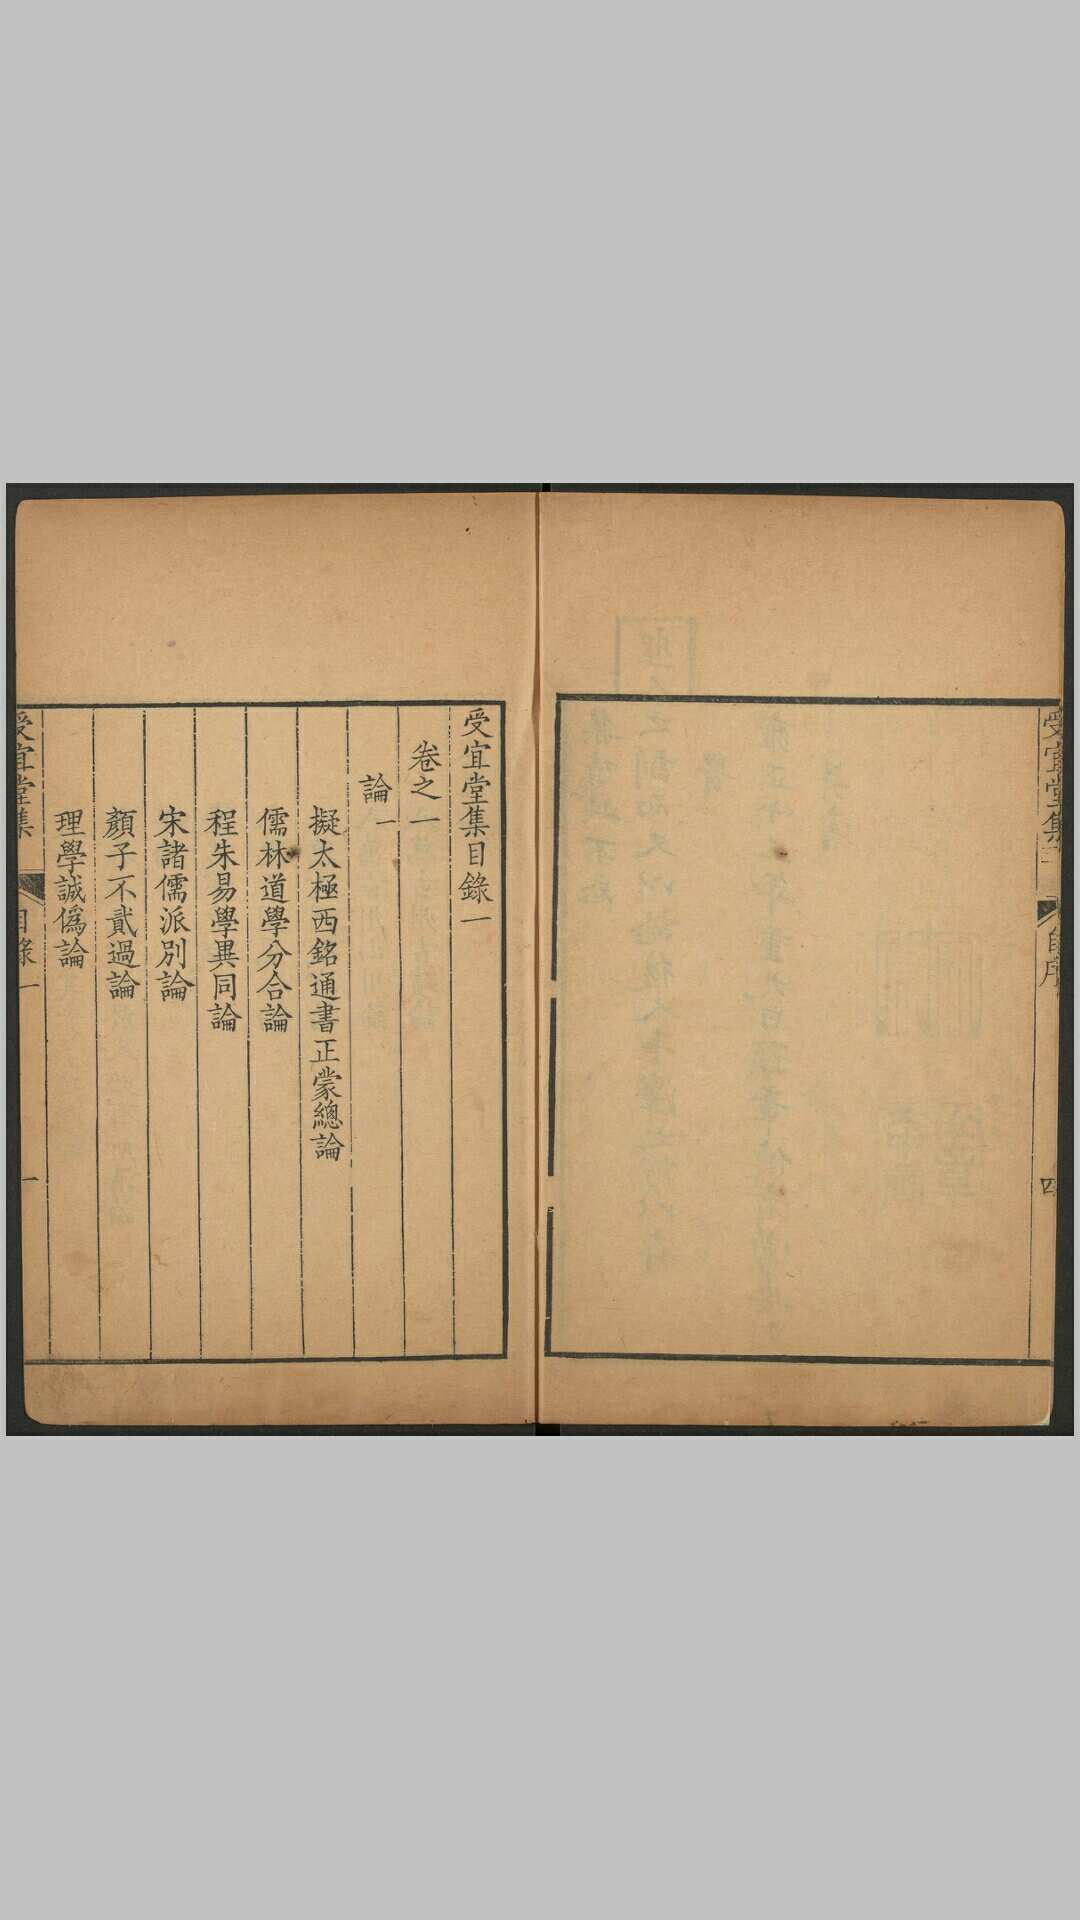 受宜堂集
自序
四
受宜堂集目錄一
卷之一
論一
擬太極西銘通書正蒙總論
儒林道學分合論
程朱易學異同論
宋諸儒派別論
顏子不貳過論
理學誠僞論
受宜堂集
目錄一
一